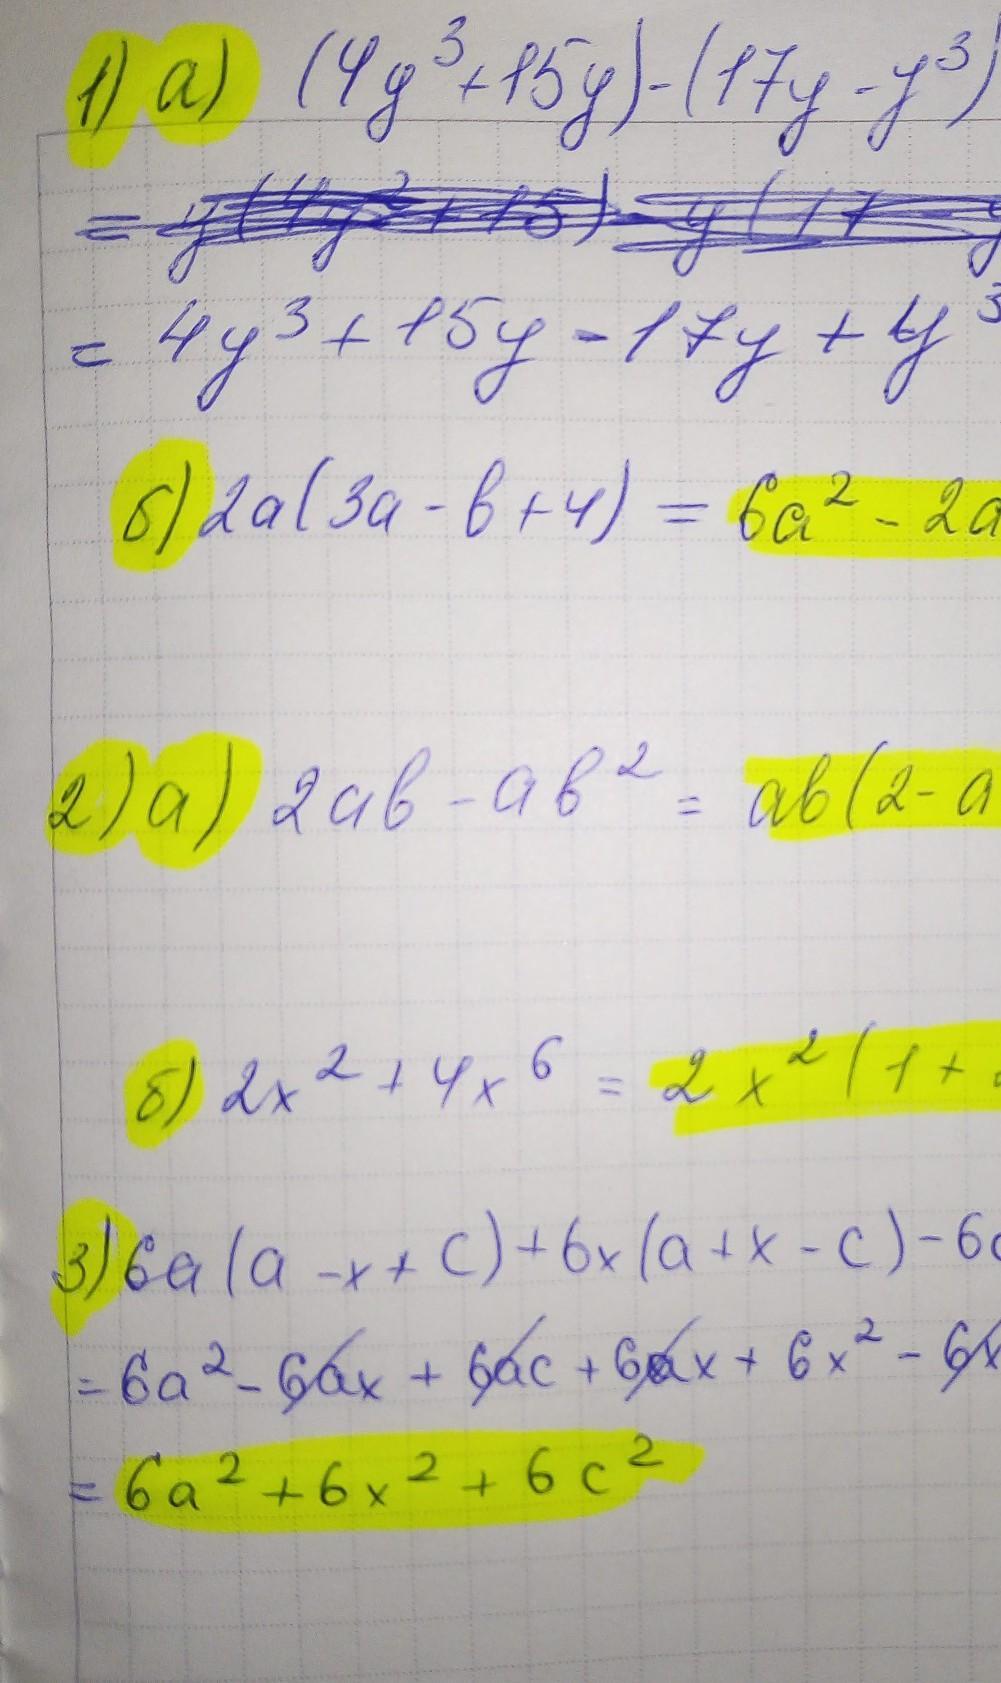 1) а) (4y³+15y)-(17y-y³)
= y(4y²+15)-y(17-y
= 4y³+15y-17y+y³
б) 2a(3a-b+4) = 6a²-2a
2) а) 2ab-ab² = ab(2-a
б) 2x²+4x⁶ = 2x²(1+
3) 6a(a-x+c)+6x(a+x-c)-6c
= 6a²-6ax+6ac+6ax+6x²-6x
= 6a²+6x²+6c²